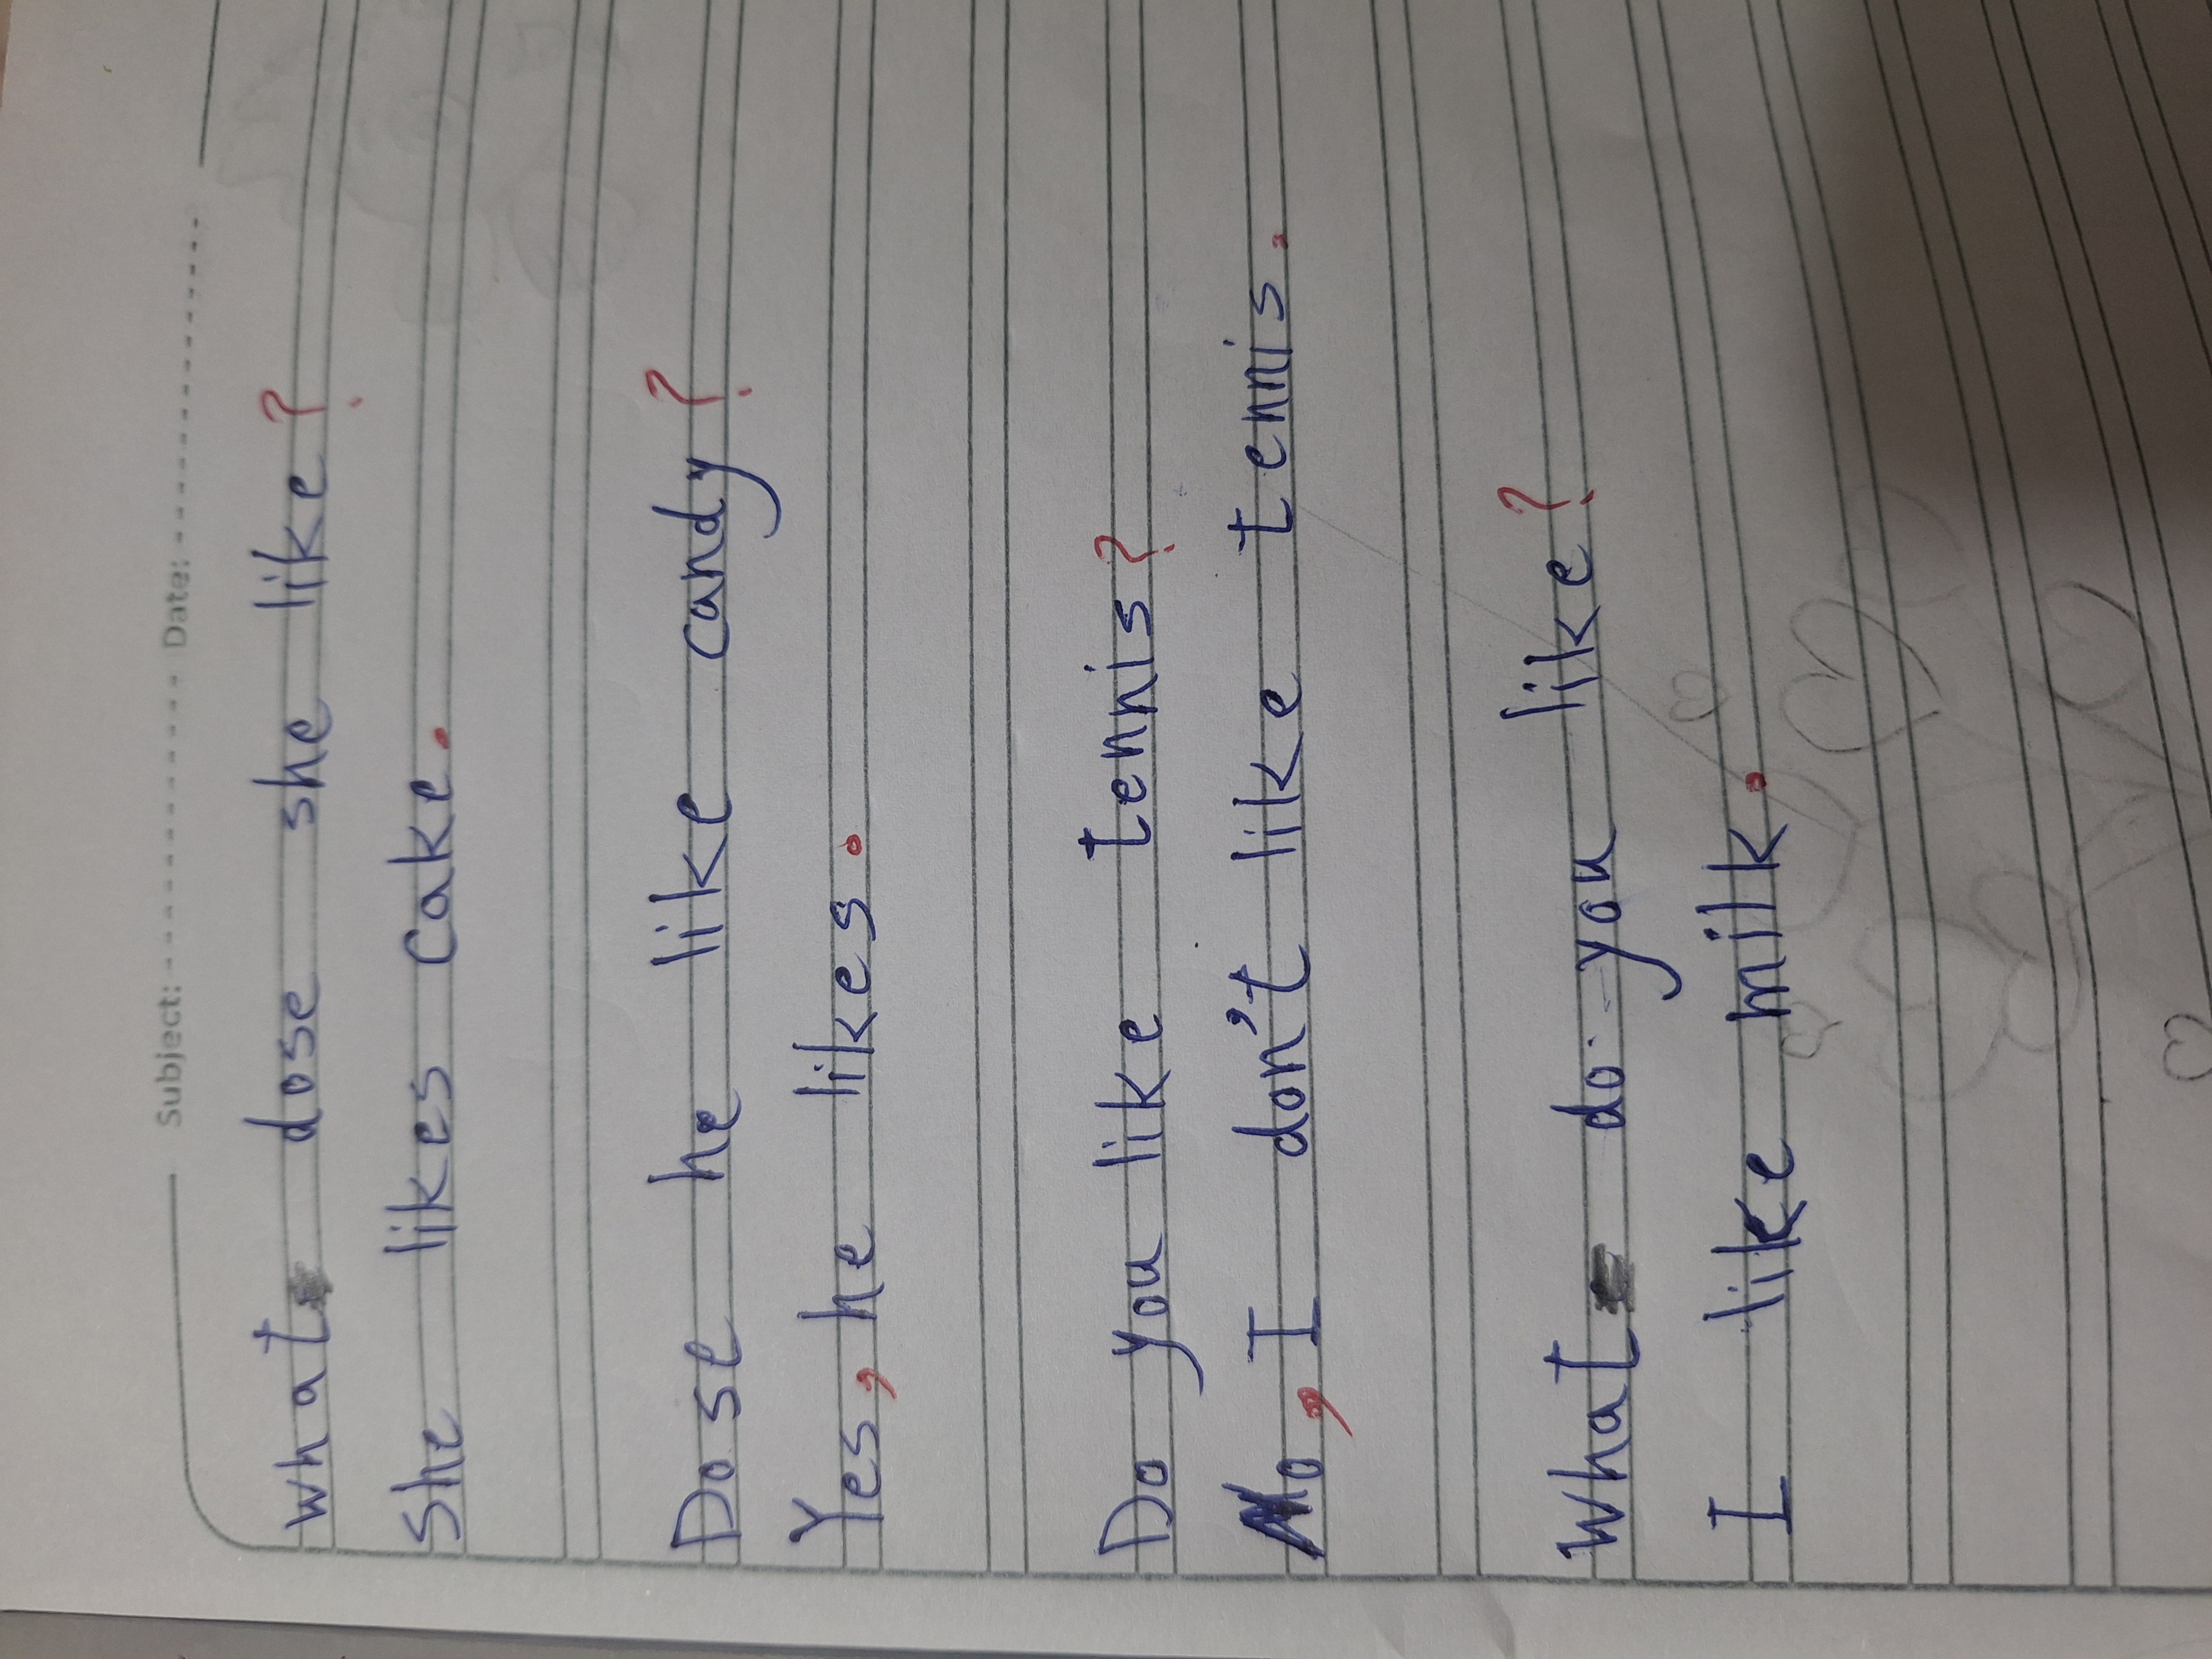 Subject: Date:
what dose she like?
She likes cake.
Dose he like candy?
Yes, he likes.
Do you like tennis?
No, I don't like tennis.
What do you like?
I like milk.